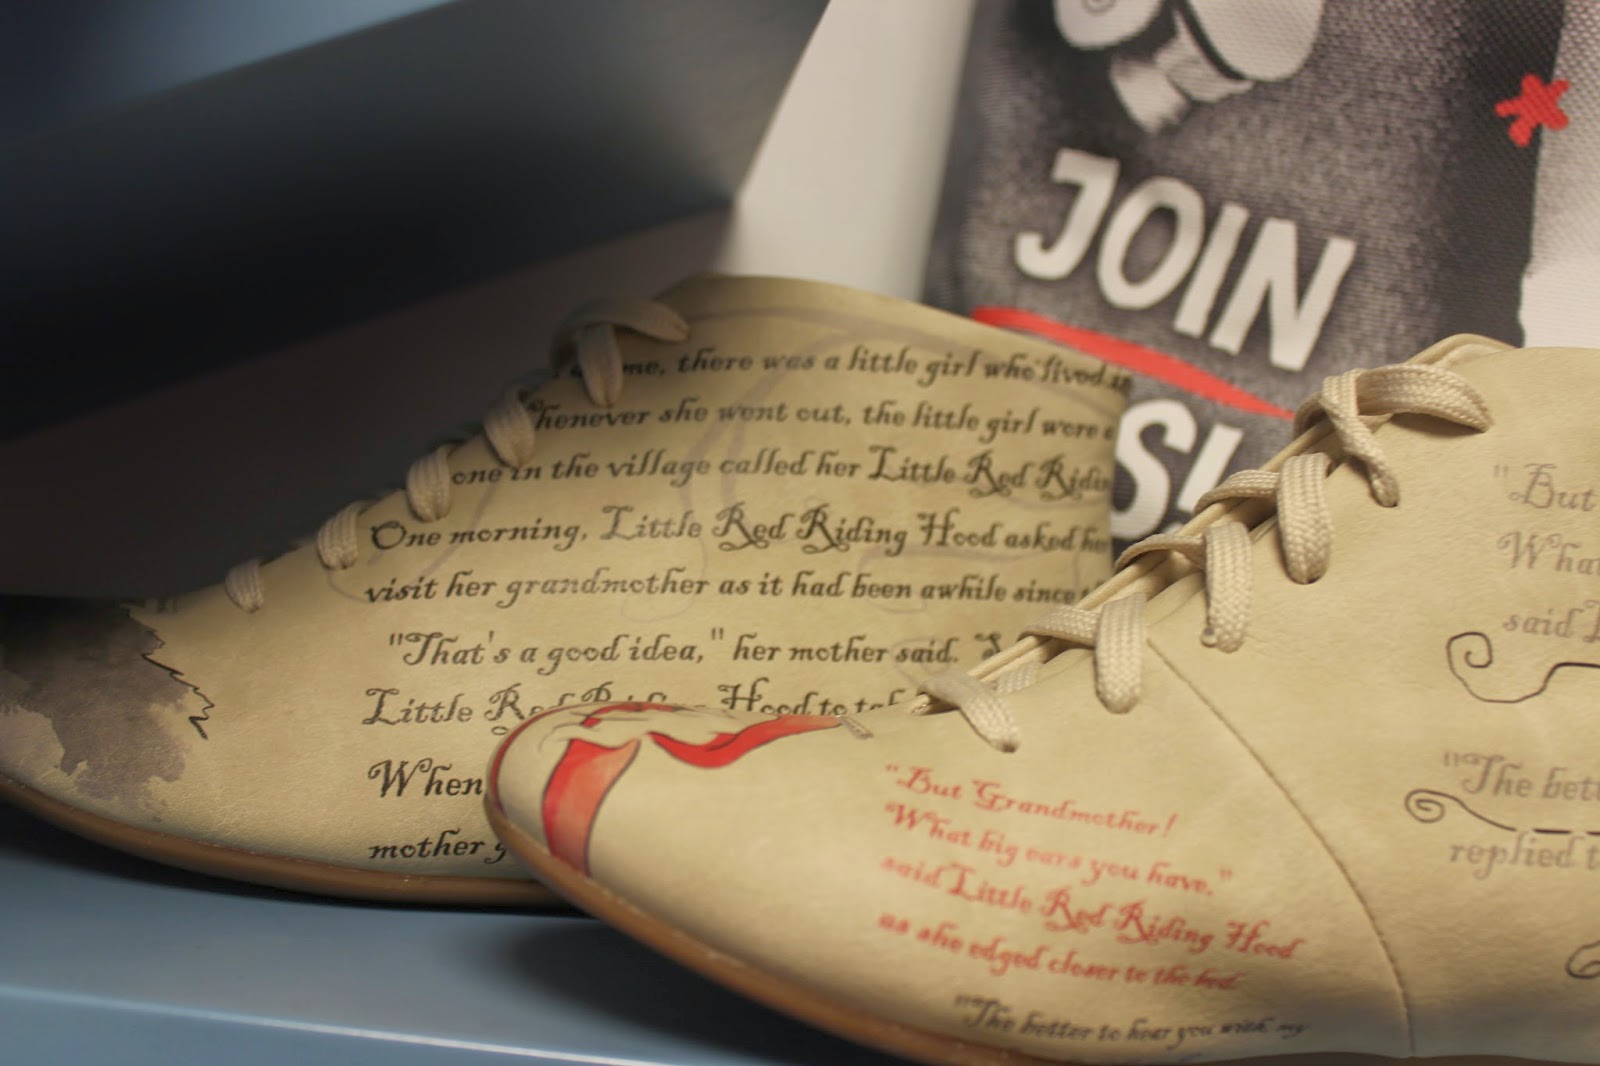 JOIN
me, there was a little girl who lived
Whenever she went out, the little girl wore
one in the village called her Little Red
One morning, Little Red Riding Hood asked
visit her grandmother as it had been awhile since
"That's a good idea," her mother said.
Little Red Riding Hood to
When
mother
"But Grandmother!
"What big ears you have,"
said Little Red Riding Hood
as she edged closer to the bed.
"The better to hear you with my
"But
said
"The
replied